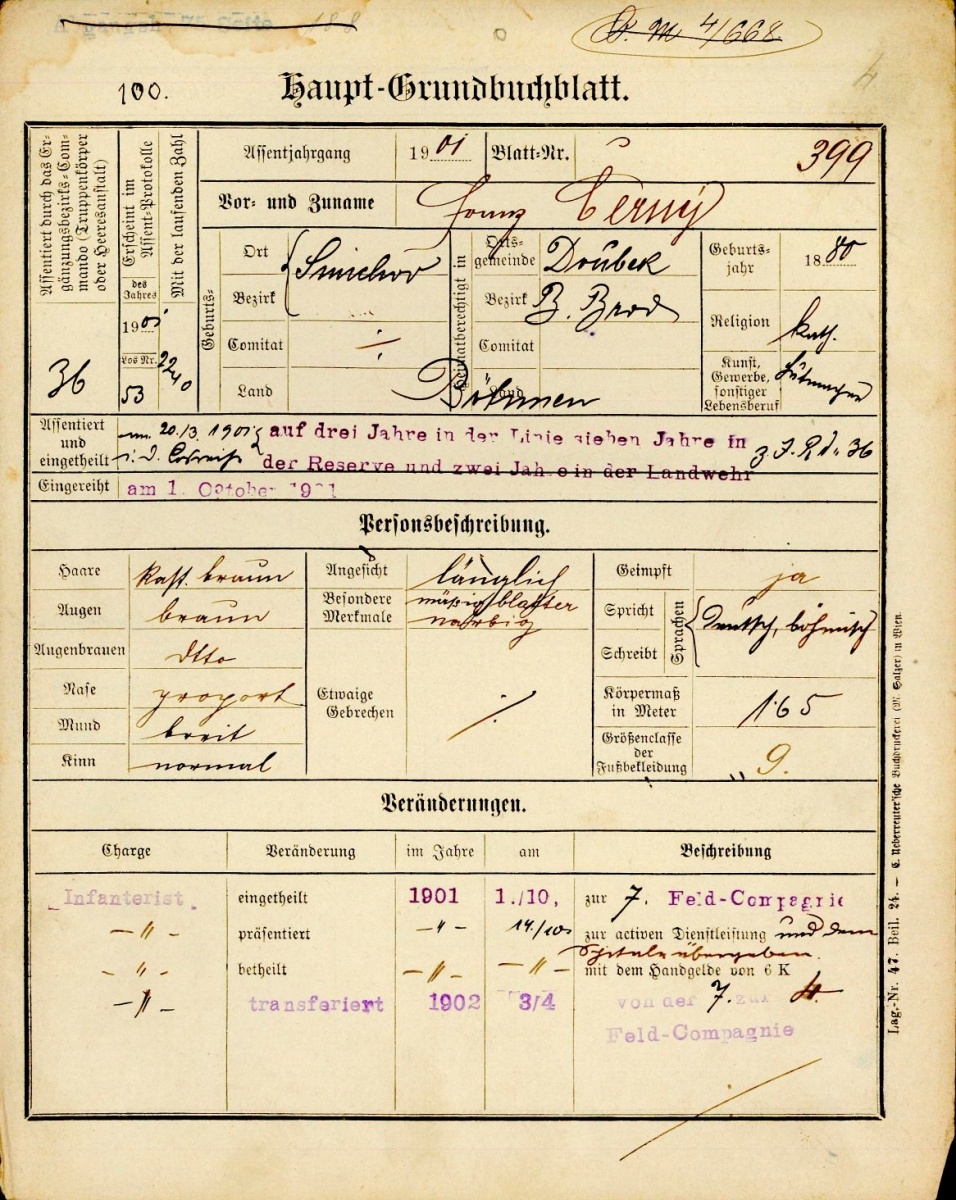 D. M 4/668
100.
Haupt-Grundbuchblatt.
Assentiert durch das Ergänzungsbezirks-Commando (Truppenkörper oder Heeresanstalt)
36
Erscheint im Assent-Protokolle
des Jahres
1901
Los Nr.
53
Mit der laufenden Zahl
2240
Assentjahrgang 1901 Blatt-Nr. 399
Vor- und Zuname Franz Černý
Geburts-
Ort Smichov
Bezirk
Comitat ./.
Land Böhmen
Heimatberechtigt in
Ortsgemeinde Doubek
Bezirk B. Brod
Comitat
Land
Geburtsjahr 1880
Religion kath.
Kunst, Gewerbe, sonstiger Lebensberuf
Assentiert und eingetheilt am 20./3. 1901 auf drei Jahre in der Linie sieben Jahre in
der Reserve und zwei Jahre in der Landwehr z. I. R. N. 36
Eingereiht am 1. October 1901
Personsbeschreibung.
Haare kast. braun
Augen braun
Augenbrauen dtto
Nase proport
Mund breit
Kinn normal
Angesicht länglich
Besondere Merkmale mäßig blatternarbig
Etwaige Gebrechen ./.
Geimpft ja
Spricht
Schreibt
Sprachen deutsch, böhmisch
Körpermaß in Meter 1·65
Größenclasse der Fußbekleidung 9.
Veränderungen.
Charge Veränderung im Jahre am Beschreibung
Infanterist eingetheilt 1901 1./10, zur 7. Feld-Compagnie
-"- präsentiert -"- 14/10 zur activen Dienstleistung und dem
Spitale übergeben.
-"- betheilt -"- -"- mit dem Handgelde von 6 K
-"- transferiert 1902 3/4 von der 7. zur 4.
Feld-Compagnie
Lag.-Nr. 47. Beil. 24. — C. Ueberreuter'sche Buchdruckerei (M. Salzer) in Wien.